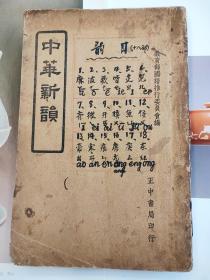 教育部國語推行委員會編
中華新韻
韵目(十八部)
1. 麻 2. 波 3. 歌 4. 皆 5. 支 6. 兒
7. 齊 8. 微 9. 開 10. 模 11. 魚 12. 侯
13. 豪 14. 寒 15. 痕 16. 唐 17. 庚 18. 东
ao an en ang eng ong
正中書局印行